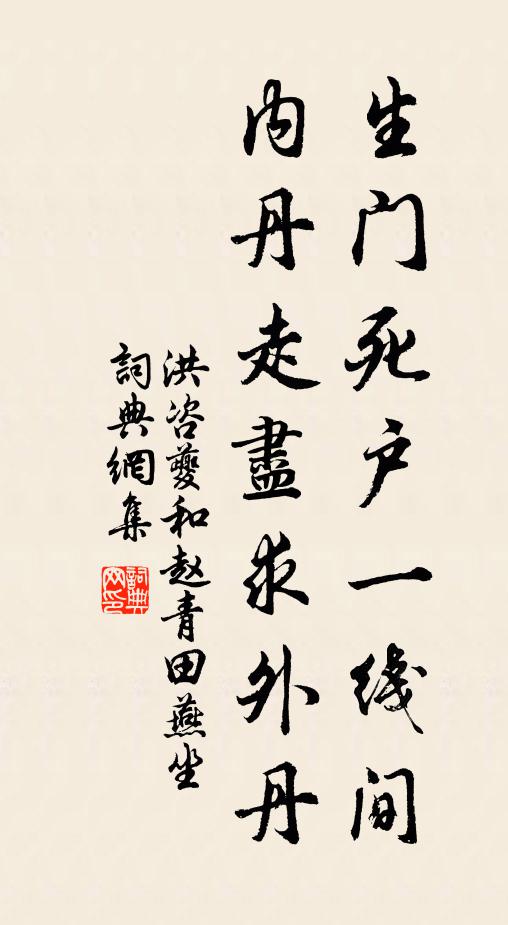 生门死户一线间
内丹走盡求外丹
洪咨夔和赵青田燕坐
詞典網集
詞典网印